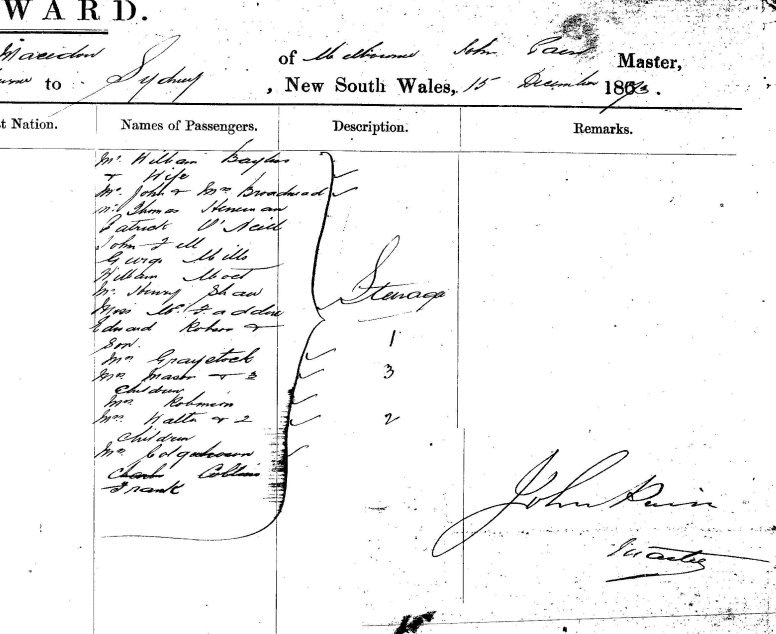 WARD.
Macedon of Melbourne John Pain Master,
to Sydney , New South Wales, 15 December 187
t Nation. Names of Passengers. Description. Remarks.
Mr William Bayliss
+ Wife
Mr John + Mrs Broadhead
Mr Thomas
Patrick O'Neill
John
George Mills
William
Mr Henry Shaw
Miss McFadden
Steerage
Edward Robson +
Son. 1
Mrs Graystock
Mrs Mason + 3 3
Children
Mrs Robinson
Mrs Walter + 2 2
Children
Mrs Colquhoun
Charles Collins
Frank
John Pain
Master